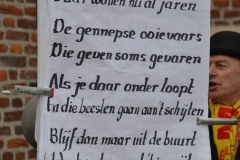 Daar wonen nu al jaren
De gennepse ooievaars
Die geven soms gevaren
Als je daar onder loopt
En die beesten gaan aan't schijten
Blijf dan maar uit de buurt